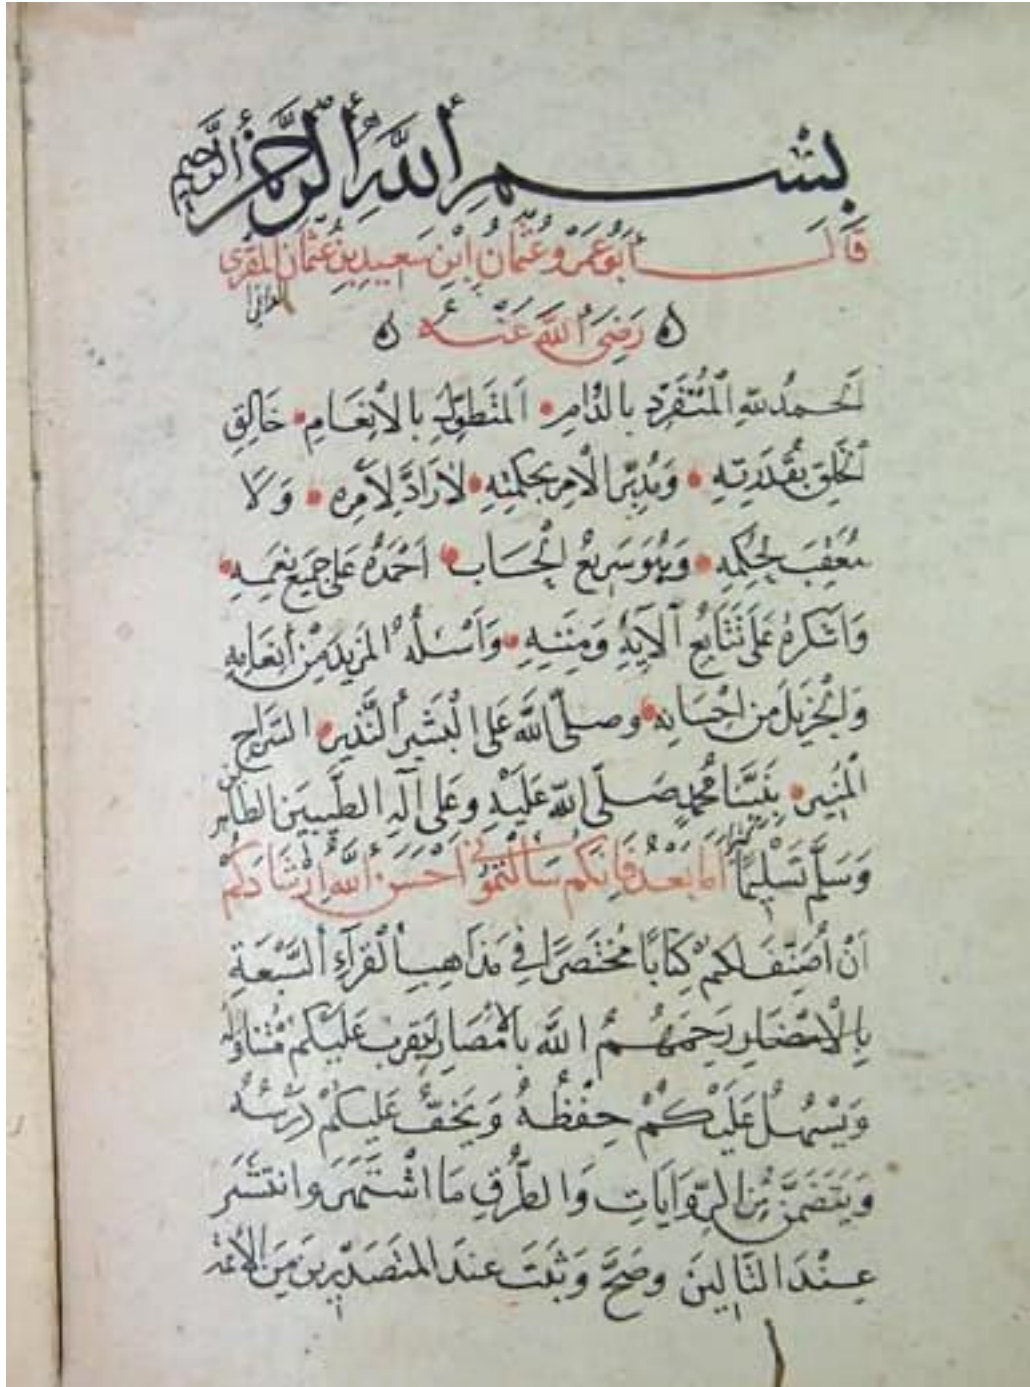 بِسْمِ اللَّهِ الرَّحْمٰنِ الرَّحِيمِ
قَالَ أَبُو عَمْرٍو عُثْمَانُ ابْنِ سَعِيدِ بْنِ عُثْمَانَ المُقْرِي
الداني
رَضِيَ اللَّهُ عَنْهُ
اَلْحَمْدُ لِلّٰهِ الْمُتَفَرِّدِ بِالدَّوَامِ اَلْمُتَطَوِّلِ بِالْاِنْعَامِ خَالِقِ
الْخَلْقِ بِقُدْرَتِهِ وَمُدَبِّرِ الْاَمْرِ بِحِكْمَتِهِ لَا رَادَّ لِاَمْرِهِ وَلَا
مُعَقِّبَ لِحُكْمِهِ وَهُوَ سَرِيعُ الْحِسَابِ اَحْمَدُهُ عَلَى جَمِيعِ نِعَمِهِ
وَاَشْكُرُهُ عَلَى تَتَابُعِ آلَائِهِ وَمِنَنِهِ وَاَسْئَلُهُ الْمَزِيدَ مِنْ اِنْعَامِهِ
وَالْجَزِيلَ مِنْ اِحْسَانِهِ وصلّى اللَّهُ عَلَى الْبَشِيرِ النَّذِيرِ السِّرَاجِ
الْمُنِيرِ نَبِيِّنَا مُحَمَّدٍ صَلَّى اللَّهُ عَلَيْهِ وَعَلَى آلِهِ الطَّيِّبِينَ الطاهرين
وَسَلَّمَ تَسْلِيمًا كثيرا اَمَّا بَعْدُ فَاِنَّكُمْ سَأَلْتُمُونِي اَحْسَنَ اللَّهُ اِرْشَادَكُمْ
اَنْ اُصَنِّفَ لَكُمْ كِتَابًا مُخْتَصَرًا فِي مَذَاهِبِ الْقُرَّاءِ السَّبْعَةِ
بِالْاَمْصَارِ رَحِمَهُمُ اللَّهُ بِالْاَمْصَارِ لِيَقْرُبَ عَلَيْكُمْ مُتَنَاوَلُهُ
وَيَسْهُلَ عَلَيْكُمْ حِفْظُهُ وَيَخِفَّ عَلَيْكُمْ دَرْسُهُ
وَيَتَضَمَّنَ مِنَ الرِّوَايَاتِ وَالطُّرُقِ مَا اشْتَهَرَ وَانْتَشَرَ
عِنْدَ التَّالِينَ وصَحَّ وَثَبَتَ عِنْدَ الْمُتَصَدِّرِينَ مِنَ الْاَئمة